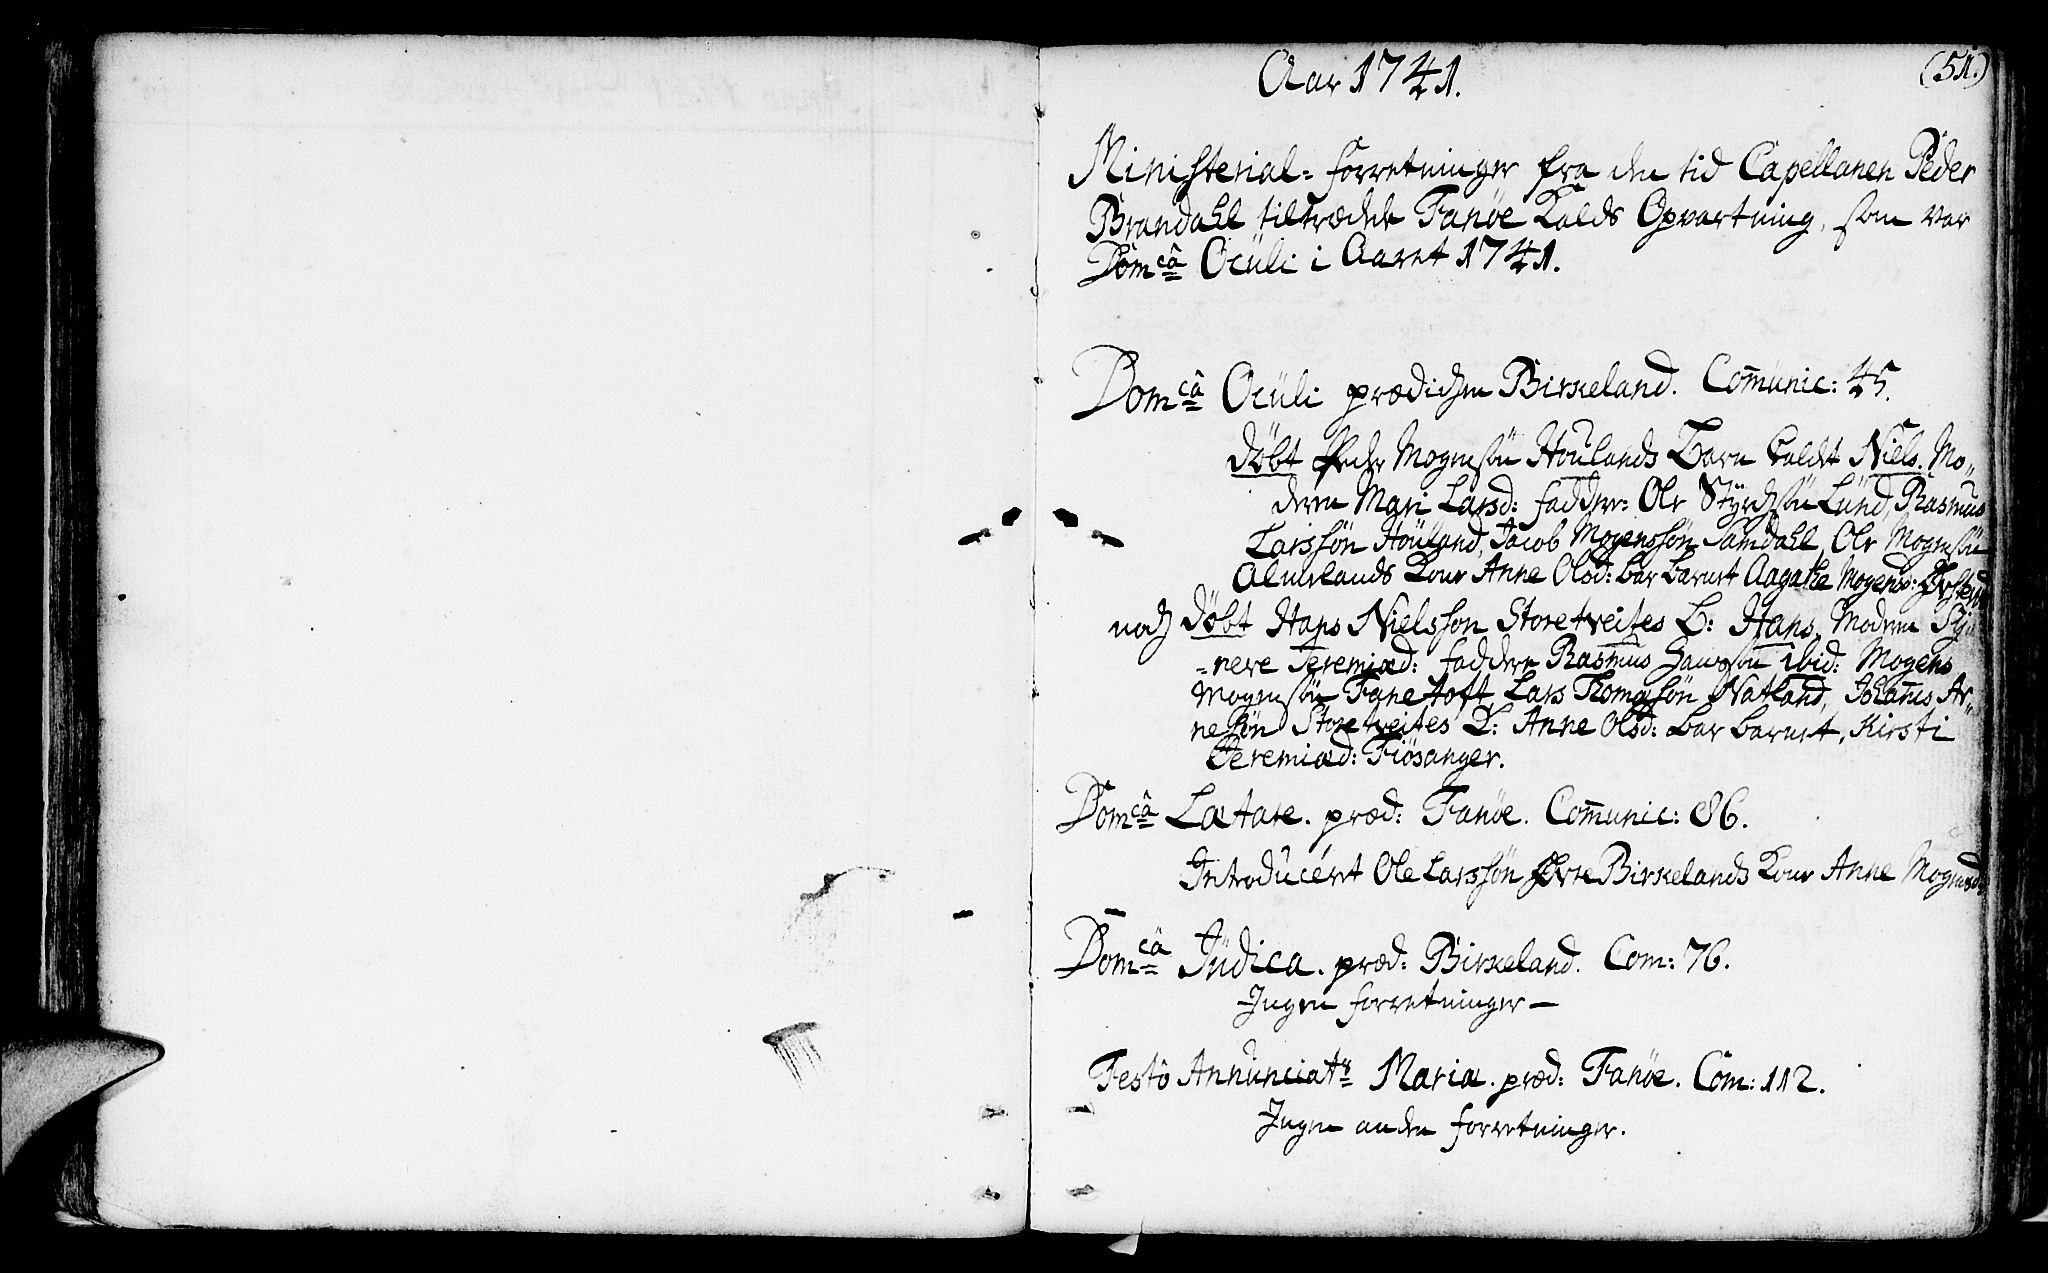 Aar 1741.
(51.)
Ministerial-forretninger fra den tid Capellanen Peder
Brandahl tiltrædde Fanøe Kalds Opvartning, som var
Domcâ Oculi i Aaret 1741.
Domcâ Oculi prædichen Birkeland. Com̅unic: 45.
døbt Peder Mogensøn Houlands Barn kaldet Niels. Mo-
deren Mari Larsd: faddere: Ole Lund, Rasmus
Larssøn Houland, Jacob Mogenssøn Samdahl, Ole Mogensøn
Alvelands Kone Anne Olsd: bar barnet Aagathe Mogensd:
noch døbt Hans Nielsson Storetveites B: Hans, Moderen Sy-
-neve Jeremiæd: faddere Rasmus Hanssøn ibid: Mogens
Mogensøn Fanetoft, Lars Thomæsøn Natland, Johan̅es Ar-
nesøn Storetveites K: Anne Olsd: bar barnet, Kirsti
Jeremiæd: Fiøsanger.
Domcâ Lætare. præd: Fanøe. Com̅unic: 86.
Introduceret Ole Larssøn Birkelands Kone Anne Mogensd:
Domcâ Judica. præd: Birkeland. Com: 76.
Ingen forretninger —
Festô Annunciats Mariæ. præd: Fanøe. Com: 112.
Ingen anden forretninger.